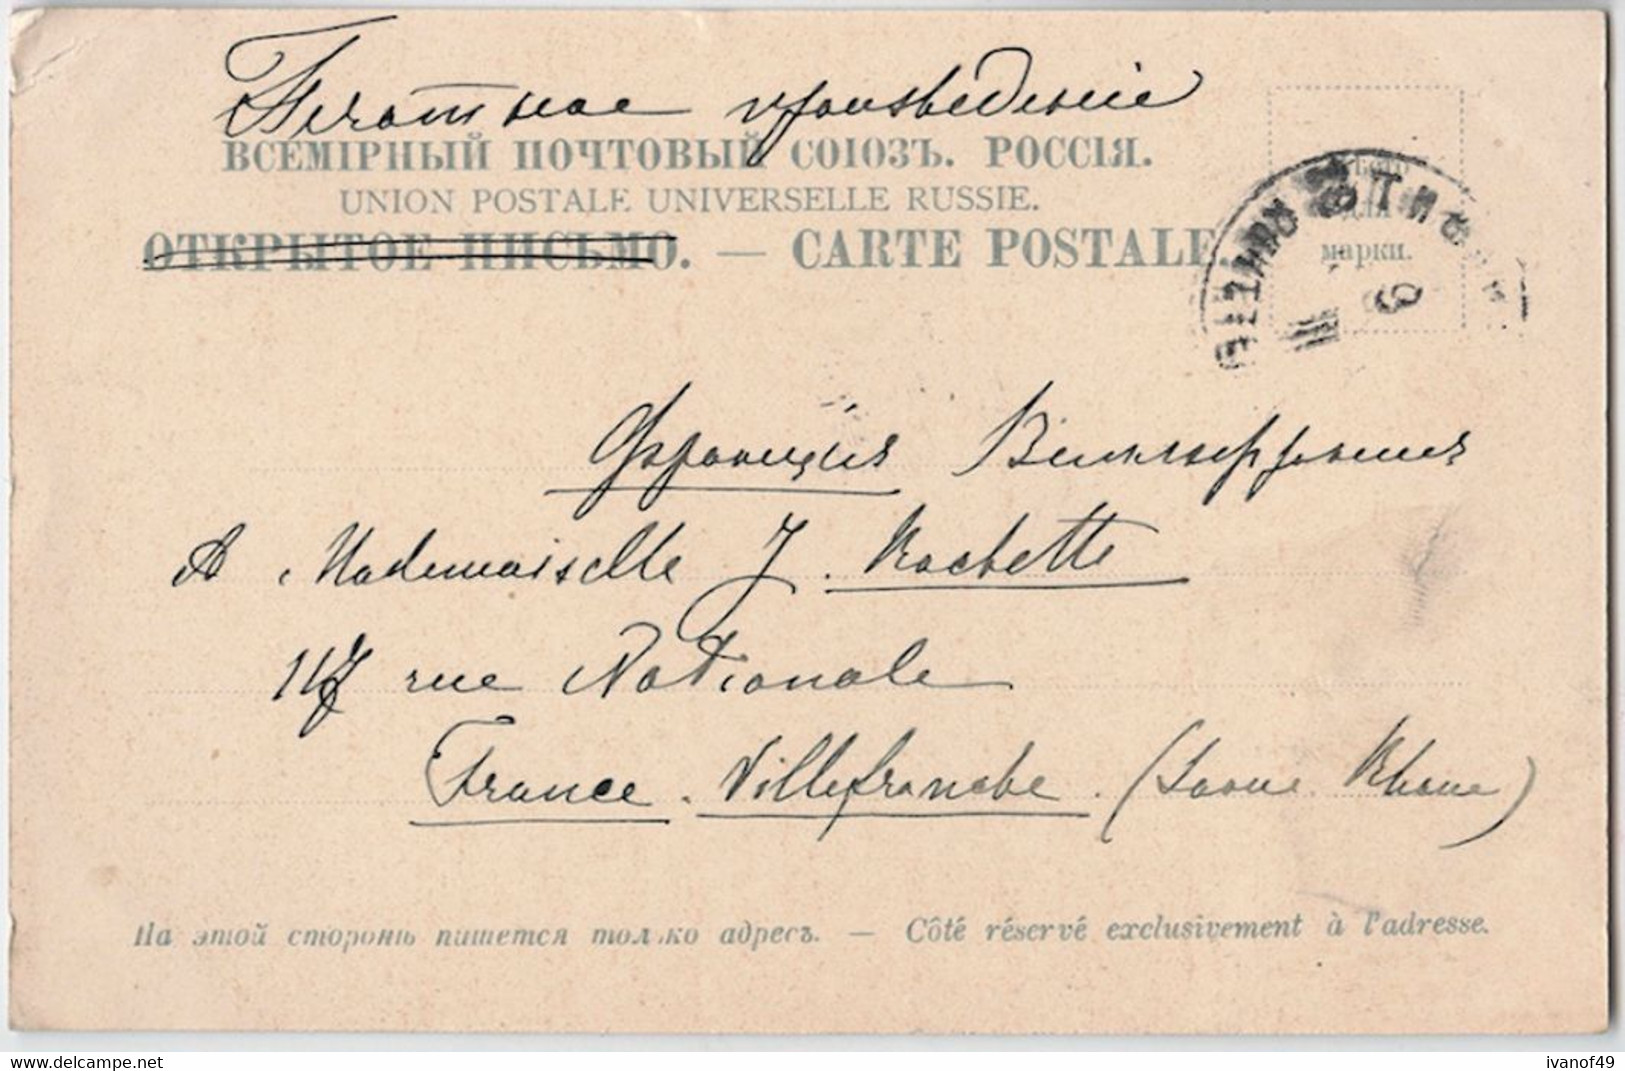 Печатное произведение
ВСЕМІРНЫЙ ПОЧТОВЫЙ СОЮЗЪ. РОССІЯ.
UNION POSTALE UNIVERSELLE RUSSIE.
ОТКРЫТОЕ ПИСЬМО. — CARTE POSTALE.
для
марки.
9
III
Франція Вильфраншъ
A Mademoiselle J. Rochette
117 rue Nationale
France. Villefranche. (Saone Rhone)
На этой сторонѣ пишется только адресъ. — Côté réservé exclusivement à l'adresse.
https://www.delcampe.net
ivanof49